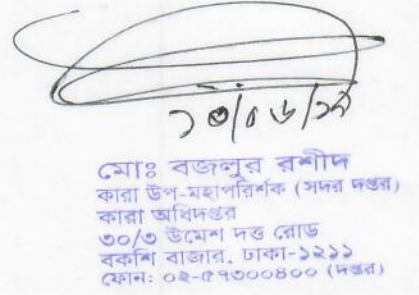 ১৩/০৬/১৯
মোঃ বজলুর রশীদ
কারা উপ-মহাপরির্শক (সদর দপ্তর)
কারা অধিদপ্তর
৩০/৩ উমেশ দত্ত রোড
বকশি বাজার, ঢাকা-১২১১
ফোন: ০২-৫৭৩০০৪০০ (দপ্তর)